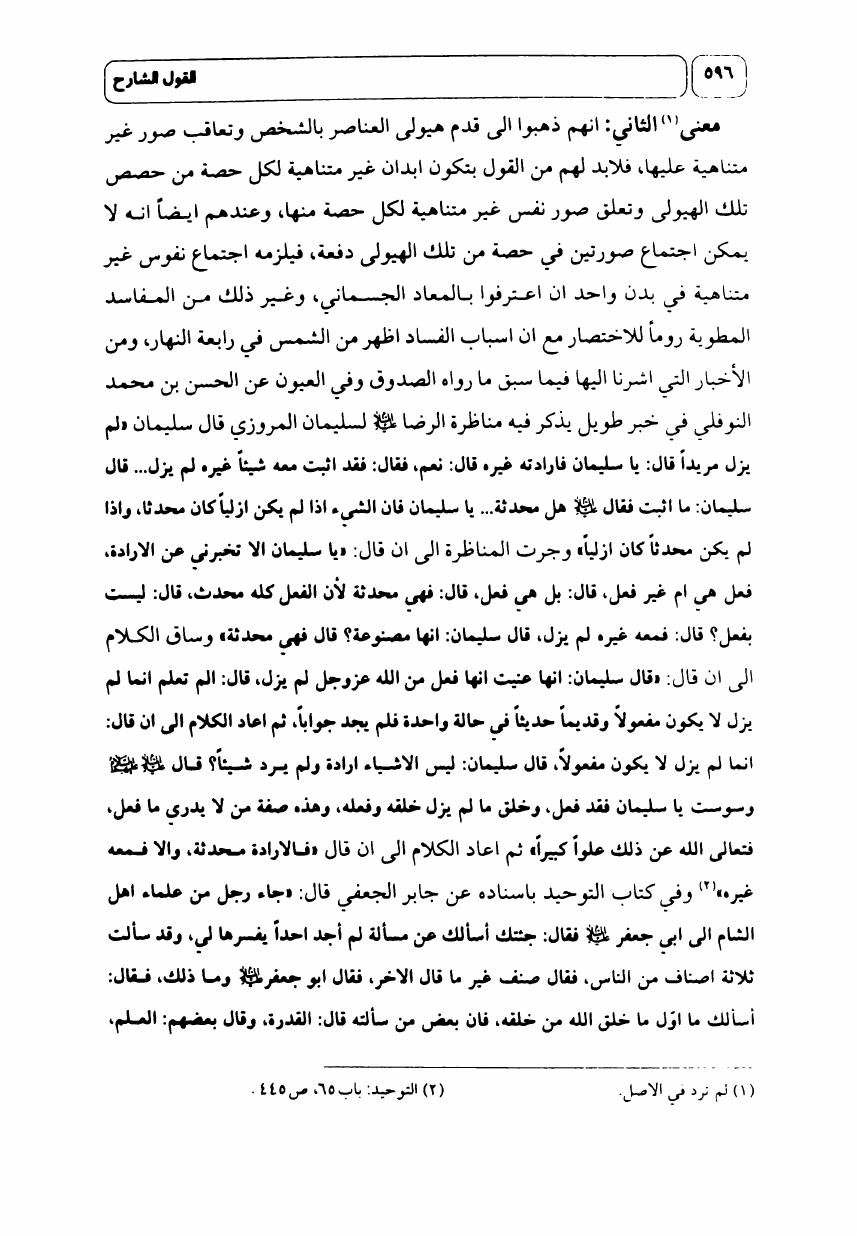 ٥٩٦
القول الشارح
معنى(١) الثاني: انهم ذهبوا الى قدم هيولى العناصر بالشخص وتعاقب صور غير
متناهية عليها، فلابد لهم من القول بتكون ابدان غير متناهية لكل حصة من حصص
تلك الهيولى وتعلق صور نفس غير متناهية لكل حصة منها، وعندهم ايضاً انه لا
يمكن اجتماع صورتين في حصة من تلك الهيولى دفعة، فيلزمه اجتماع نفوس غير
متناهية في بدن واحد ان اعترفوا بالمعاد الجسماني، وغير ذلك من المفاسد
المطوية روماً للاختصار مع ان اسباب الفساد اظهر من الشمس في رابعة النهار، ومن
الأخبار التي اشرنا اليها فيما سبق ما رواه الصدوق وفي العيون عن الحسن بن محمد
النوفلي في خبر طويل يذكر فيه مناظرة الرضا ﷷ لسليمان المروزي قال سليمان «لم
يزل مريداً قال: يا سليمان فارادته غيره قال: نعم، فقال: فقد اثبت معه شيئاً غيره لم يزل... قال
سليمان: ما اثبت فقال هل محدثة... يا سليمان فان الشيء اذا لم يكن ازلياً كان محدثا، واذا
لم يكن محدثاً كان ازلياً» وجرت المناظرة الى ان قال: «يا سليمان الا تخبرني عن الارادة،
فعل هي ام غير فعل، قال: بل هي فعل، قال: فهي محدثة لأن الفعل كله محدث، قال: ليست
بفعل؟ قال: فمعه غيره لم يزل، قال سليمان: انها مصنوعة؟ قال فهي محدثة» وساق الكلام
الى ان قال: «قال سليمان: انها عنيت انها فعل من الله عزوجل لم يزل، قال: الم تعلم انما لم
يزل لا يكون مفعولاً وقديماً حديثاً في حالة واحدة فلم يجد جواباً، ثم اعاد الكلام الى ان قال:
انما لم يزل لا يكون مفعولاً، قال سليمان: ليس الاشياء ارادة ولم يرد شيئاً؟ قال
وسوست يا سليمان فقد فعل، وخلق ما لم يزل خلقه وفعله، وهذه صفة من لا يدري ما فعل،
فتعالى الله عن ذلك علواً كبيراً» ثم اعاد الكلام الى ان قال «فالارادة محدثة، والا فمعه
غيره»(٢) وفي كتاب التوحيد باسناده عن جابر الجعفي قال: «جاء رجل من علماء اهل
الشام الى ابي جعفر فقال: جئتك أسألك عن مسألة لم أجد احداً يفسرها لي، وقد سألت
ثلاثة اصناف من الناس، فقال صنف غير ما قال الاخر، فقال ابو جعفر وما ذلك، فقال:
أسألك ما اوّل ما خلق الله من خلقه، فان بعض من سألته قال: القدرة، وقال بعضهم: العلم،
(١) لم نرد في الاصل.
(٢) التوحيد: باب ٦٥، ص ٤٤٥.